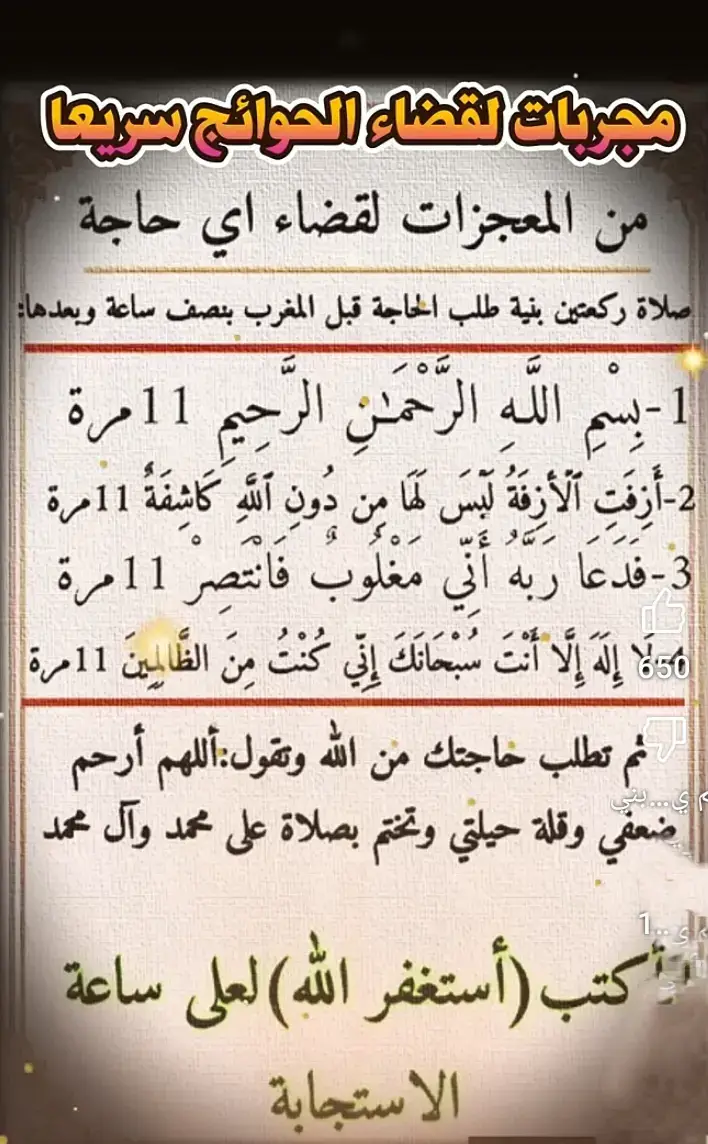 مجربات لقضاء الحوائج سريعا
من المعجزات لقضاء اي حاجة
صلاة ركعتين بنية طلب الحاجة قبل المغرب بنصف ساعة وبعدها:
1-بِسْمِ اللَّهِ الرَّحْمَٰنِ الرَّحِيمِ 11مرة
2-أَزِفَتِ ٱلْأَزِفَةُ لَيْسَ لَهَا مِن دُونِ ٱللَّهِ كَاشِفَةٌ 11مرة
3-فَدَعَا رَبَّهُ أَنِّي مَغْلُوبٌ فَانْتَصِرْ 11مرة
لَا إِلَهَ إِلَّا أَنْتَ سُبْحَانَكَ إِنِّي كُنْتُ مِنَ الظَّالِمِينَ 11مرة
650
ثم تطلب حاجتك من الله وتقول:أللهم أرحم
ضعفي وقلة حيلتي وتختم بصلاة على محمد وآل محمد
أكتب (أستغفر الله) لعلى ساعة
الاستجابة